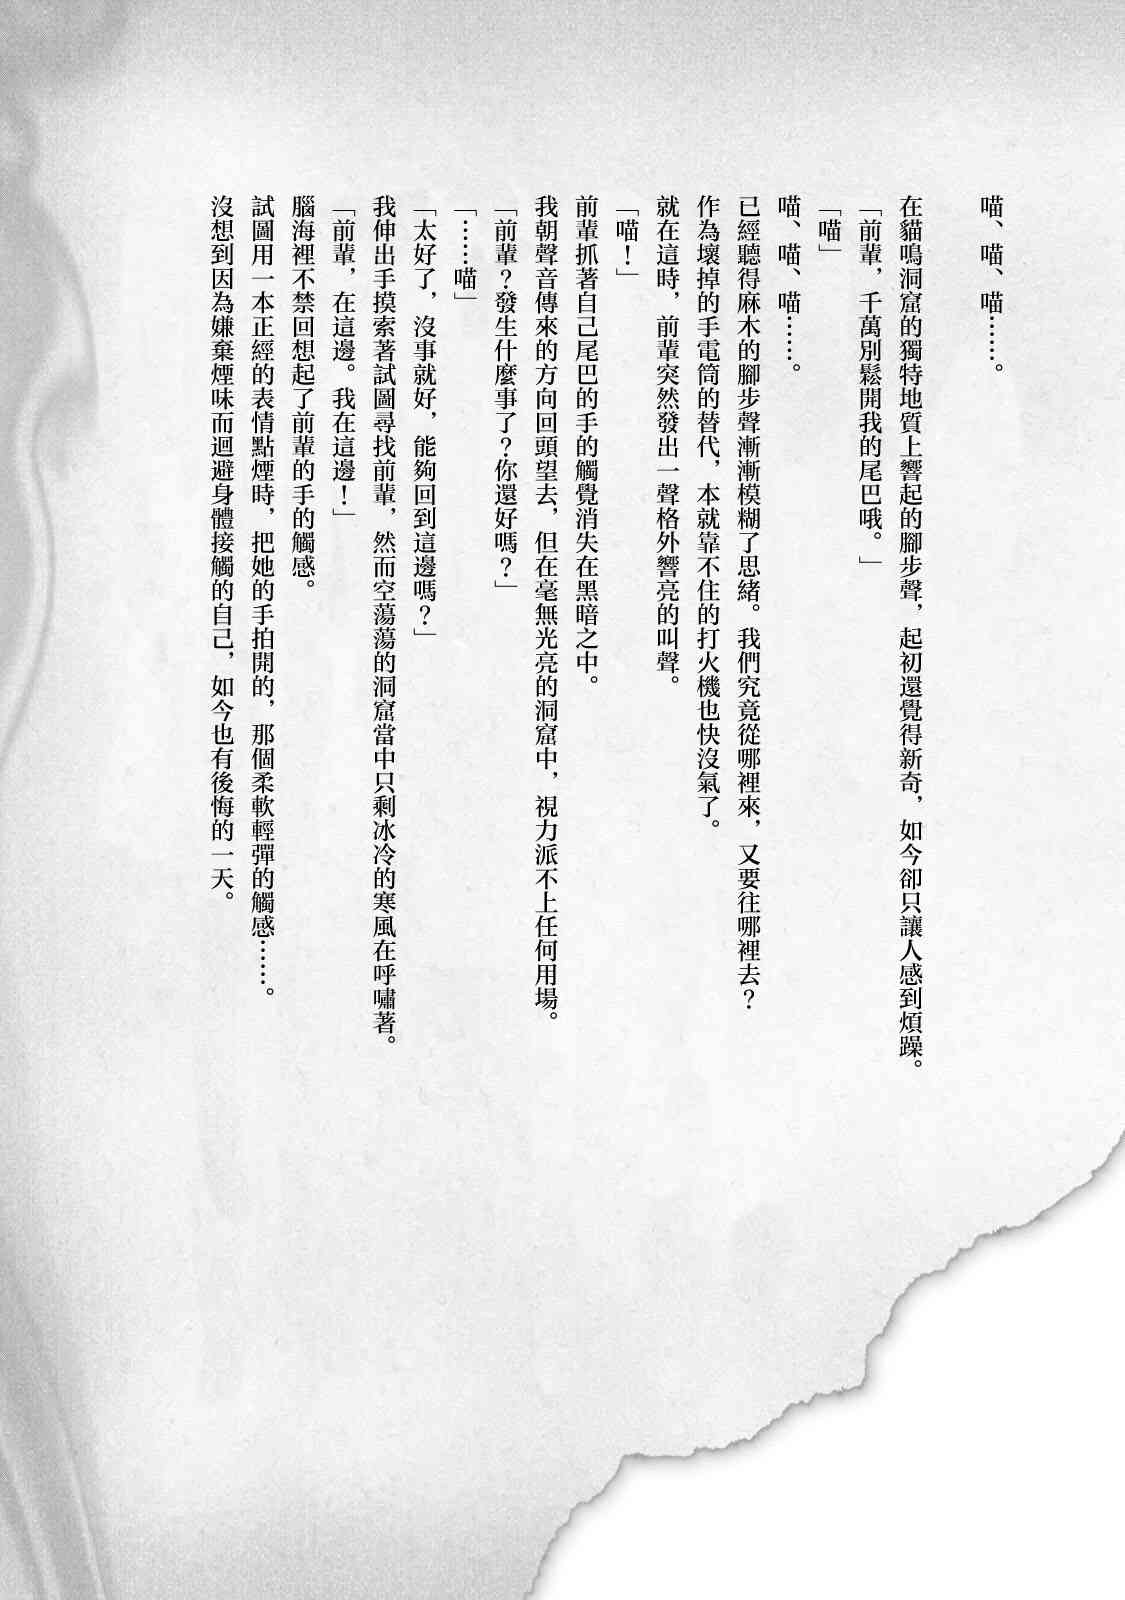 喵、喵、喵……。
在貓鳴洞窟的獨特地質上響起的腳步聲，起初還覺得新奇，如今卻只讓人感到煩躁。
「前輩，千萬別鬆開我的尾巴哦。」
「喵」
喵、喵、喵……。
已經聽得麻木的腳步聲漸漸模糊了思緒。我們究竟從哪裡來，又要往哪裡去？
作為壞掉的手電筒的替代，本就靠不住的打火機也快沒氣了。
就在這時，前輩突然發出一聲格外響亮的叫聲。
「喵！」
前輩抓著自己尾巴的手的觸覺消失在黑暗之中。
我朝聲音傳來的方向回頭望去，但在毫無光亮的洞窟中，視力派不上任何用場。
「前輩？發生什麼事了？你還好嗎？」
「……喵」
「太好了，沒事就好，能夠回到這邊嗎？」
我伸出手摸索著試圖尋找前輩，然而空蕩蕩的洞窟當中只剩冰冷的寒風在呼嘯著。
「前輩，在這邊。我在這邊！」
腦海裡不禁回想起了前輩的手的觸感。
試圖用一本正經的表情點煙時，把她的手拍開的，那個柔軟輕彈的觸感……。
沒想到因為嫌棄煙味而迴避身體接觸的自己，如今也有後悔的一天。